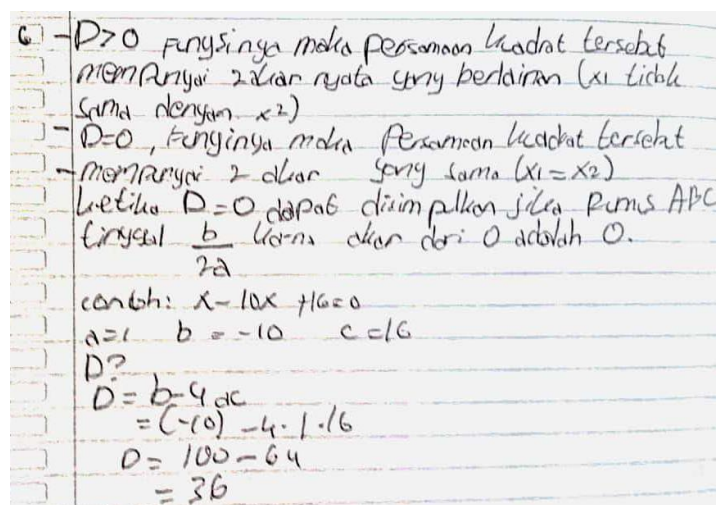 6 - D>0 Fungsinya maka persamaan kuadrat tersebut
mempunyai 2 akar nyata yang berlainan (x1 tidak
sama dengan x2)
- D=0, Funginya maka Persamaan kuadrat tersebut
- mempunyai 2 akar yang sama (x1 = x2)
ketika D=0 dapat disimpulkan jika Rumus ABC
tinggal b/2a karna akar dari 0 adalah 0.
contoh: x - 10x + 16 = 0
a=1 b = -10 c = 16
D?
D = b - 4ac
= (-10) - 4 . 1 . 16
D = 100 - 64
= 36